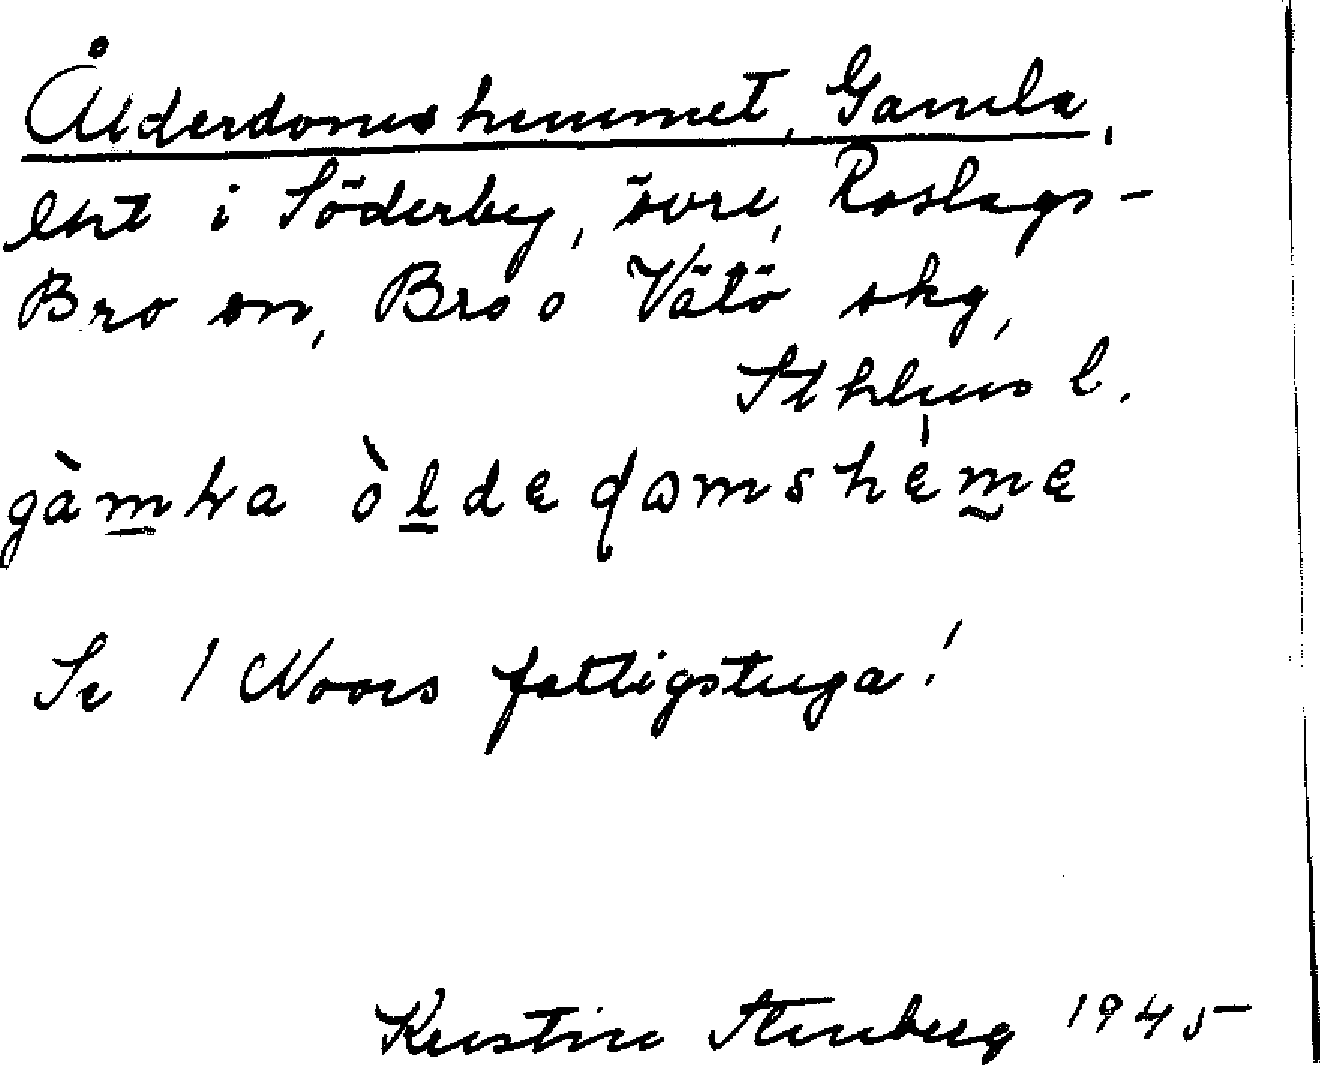 Ålderdomshemmet, Gamla,
lht i Söderby, övre, Roslags-
Bro sn, Bro o Vätö skg,
Sthlms l.
gàmɬa òldeɖomshème
Se / Noors fattigstuga!
Kerstin Stenberg 1945